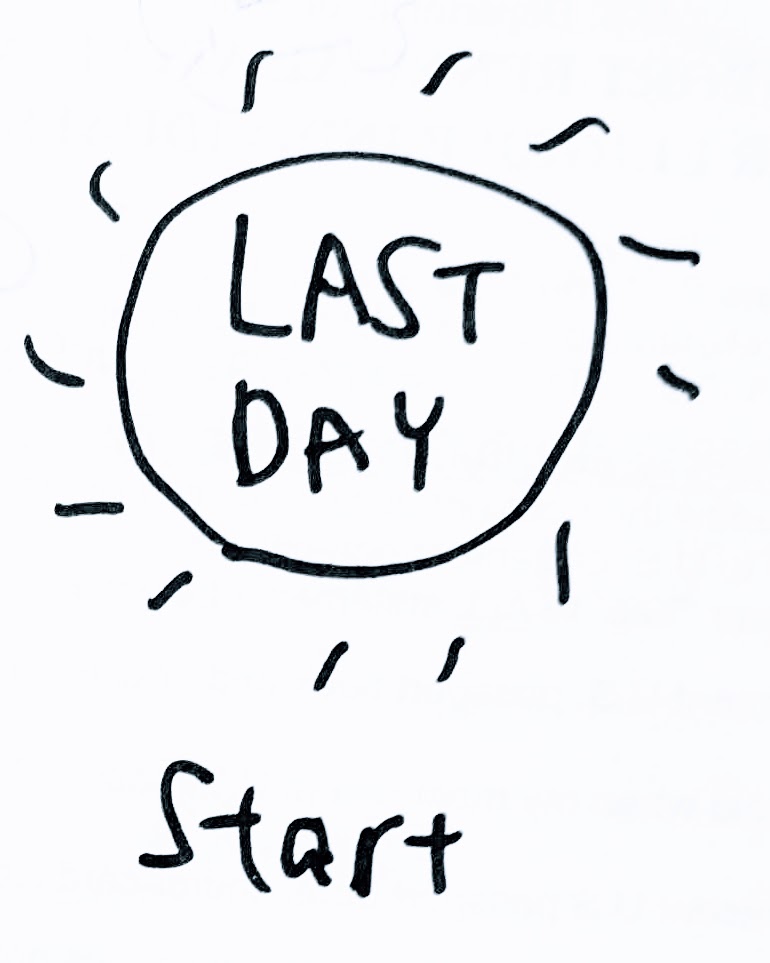 LAST
DAY
Start